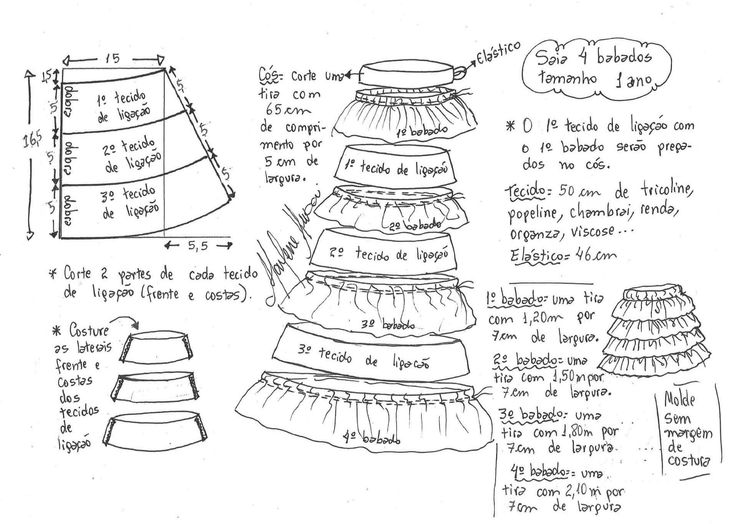 15
15
5
5
5
16,5
dobra
1º tecido
de ligação
dobra
2º tecido
de ligação
dobra
3º tecido
de ligação
5
5
5
5,5
* Corte 2 partes de cada tecido
de ligação (frente e costas).
* Costure
as laterais
frente e
costas
dos
tecidos
de
ligação
Cós= Corte uma
tira com
65 cm
de compri-
mento por
5 cm de
largura.
Elástico
1º babado
1º tecido de ligação
2º babado
2º tecido de ligação
3º babado
3º tecido de ligação
4º babado
Saia 4 babados
tamanho 1 ano
* O 1º tecido de ligação com
o 1º babado serão prega-
dos no cós.
Tecido= 50 cm de tricoline,
popeline, chambrai, renda,
organza, viscose...
Elástico= 46 cm
1º babado= uma tira
com 1,20m por
7cm de largura.
2º babado= uma
tira com 1,50m por
7cm de largura.
3º babado= uma
tira com 1,80m por
7cm de largura.
4º babado= uma
tira com 2,10m por
7cm de largura
Molde
sem
margem
de
costura